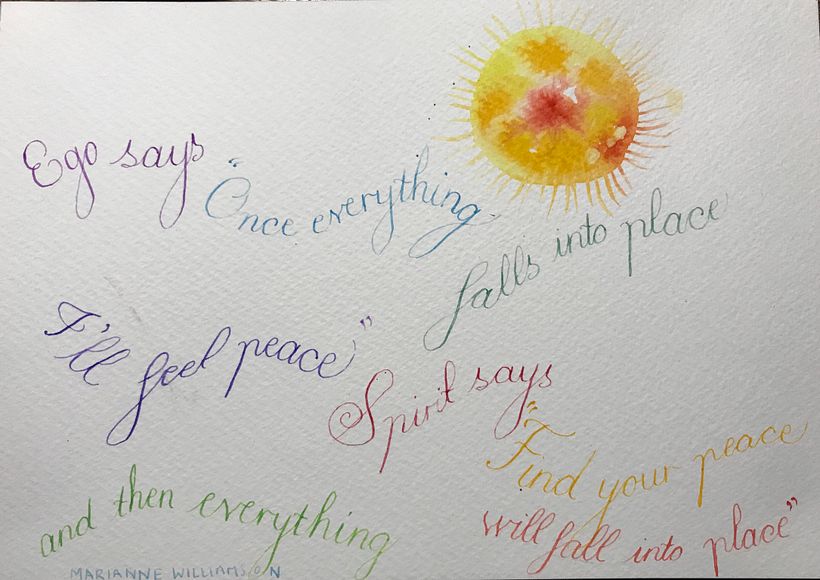 Ego says
"Once everything
falls into place
I'll feel peace"
Spirit says
"Find your peace
and then everything
will fall into place"
MARIANNE WILLIAMSON